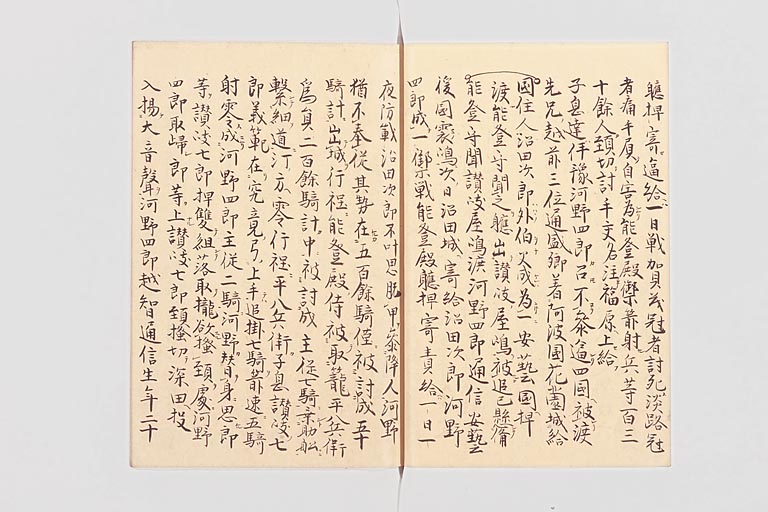 軈押寄逼給一日戦加賀冠者討死淡路冠
者痛手負自害為能登殿禦靠射兵等百三
十餘人頚切討手交名注福原上給
子息達伴豫河野四郎召不参逼四国被渡
先兄越前三位通盛卿着阿波国花園城給
国住人沼田次郎外伯父成為一安藝国押
渡能登守聞之軈出讃岐屋嶋被追已縣備
能登守聞讃岐屋嶋渡河野四郎通信安藝
後国蓑嶋次日沼田城寄給沼田次郎河野
四郎成一禦戦能登殿軈押寄責給一日一
夜防戦沼田次郎不叶思脱甲参降人河野
猶不奉従其勢在五百餘騎僅被討成五十
騎計出城行程能登殿侍被取籠平八兵衛
為員二百餘騎計中被討成主従七騎乗助舩
繋細道汀方零行程平八兵衛子息讃岐七
郎義範在究竟弓上手追掛七騎靠速五騎
射零成河野四郎主従二騎河野替身思郎
等讃岐七郎押雙組落取攏欲搔頚處河野
四郎取帰郎等上讃岐七郎頚搔切深田投
入揚大音聲河野四郎越智通信生年二十